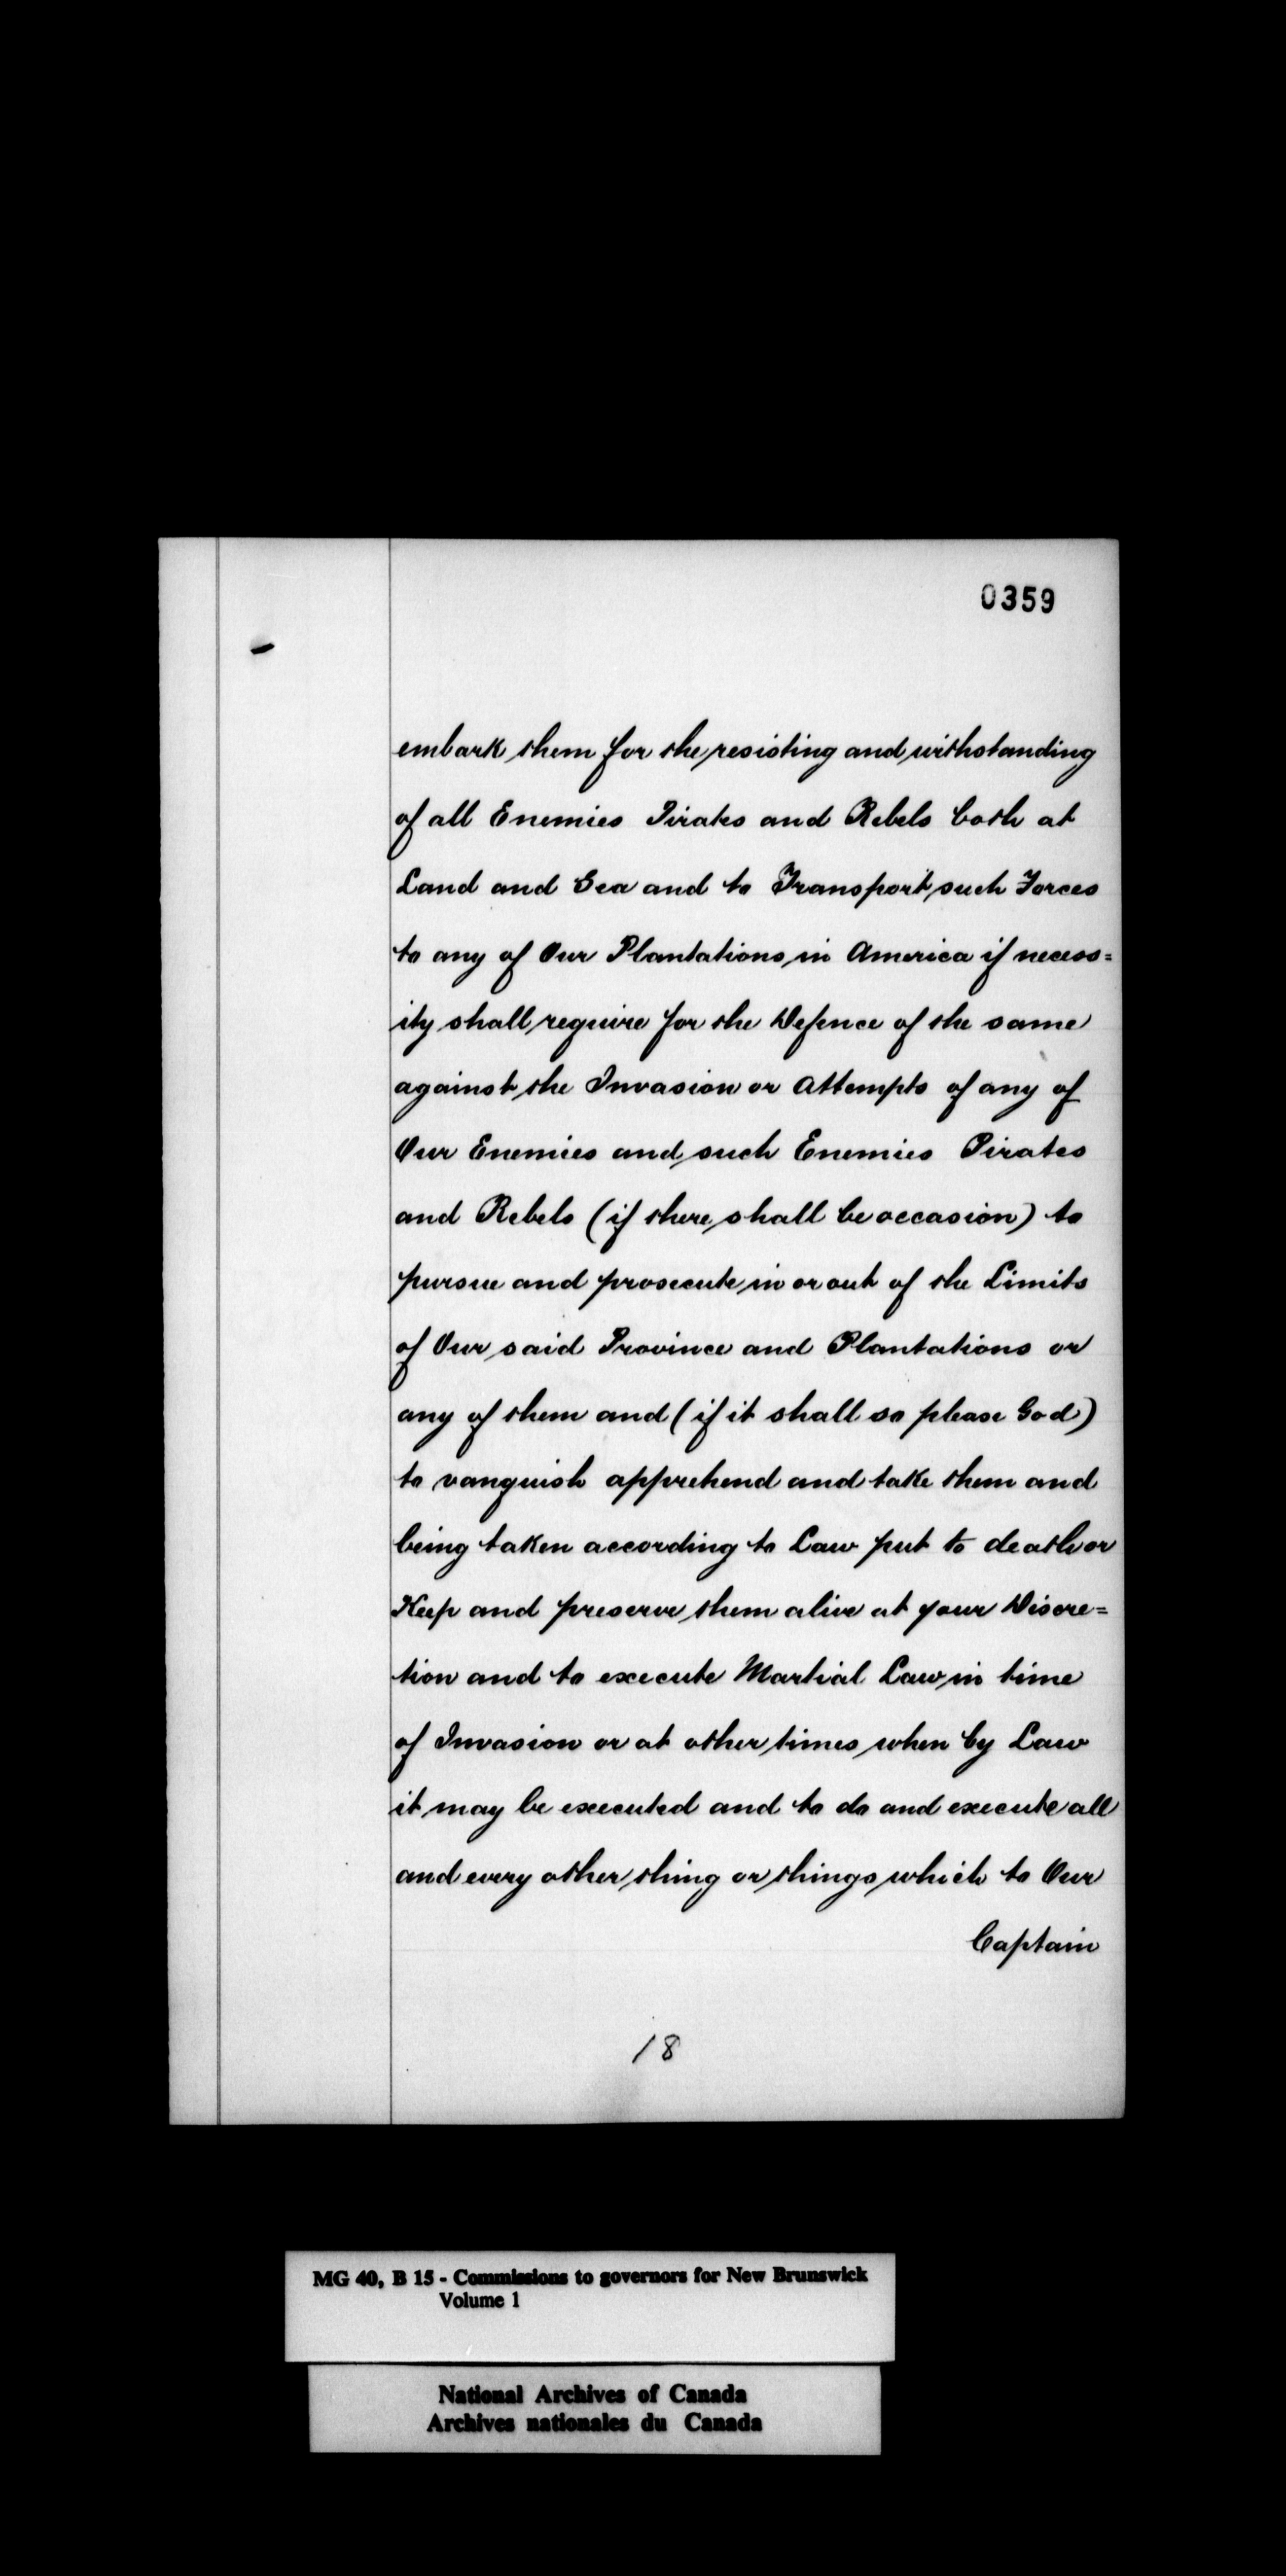 0359
embark them for the resisting and withstanding
of all Enemies Pirates and Rebels both at
Land and Sea and to Transport such Forces
to any of Our Plantations in America if necess=
ity shall require for the Defence of the same
against the Invasion or Attempts of any of
Our Enemies and such Enemies Pirates
and Rebels (if there shall be occasion) to
pursue and prosecute in or out of the Limits
of Our said Province and Plantations or
any of them and (if it shall so please God)
to vanquish apprehend and take them and
being taken according to Law put to death or
Keep and preserve them alive at your Discre=
tion and to execute Martial Law in time
of Invasion or at other times when by Law
it may be executed and to do and execute all
and every other thing or things which to Our
Captain
18
MG 40, B 15 - Commissions to governors for New Brunswick
Volume 1
National Archives of Canada
Archives nationales du Canada